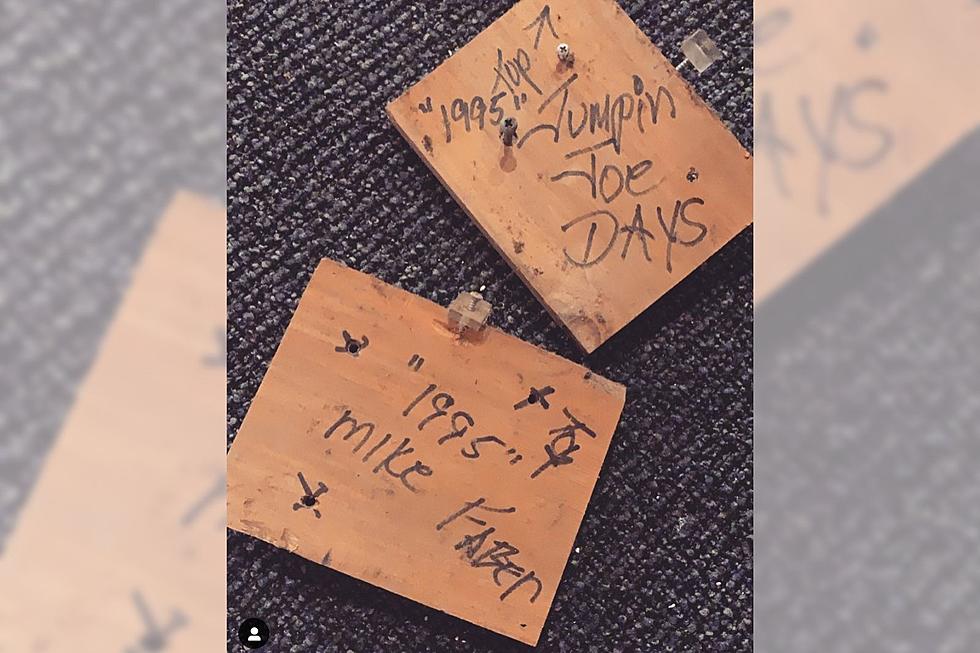 Top
"1995" Jumpin
Joe
DAYS
"1995" Top
MIKE FABER
AYS